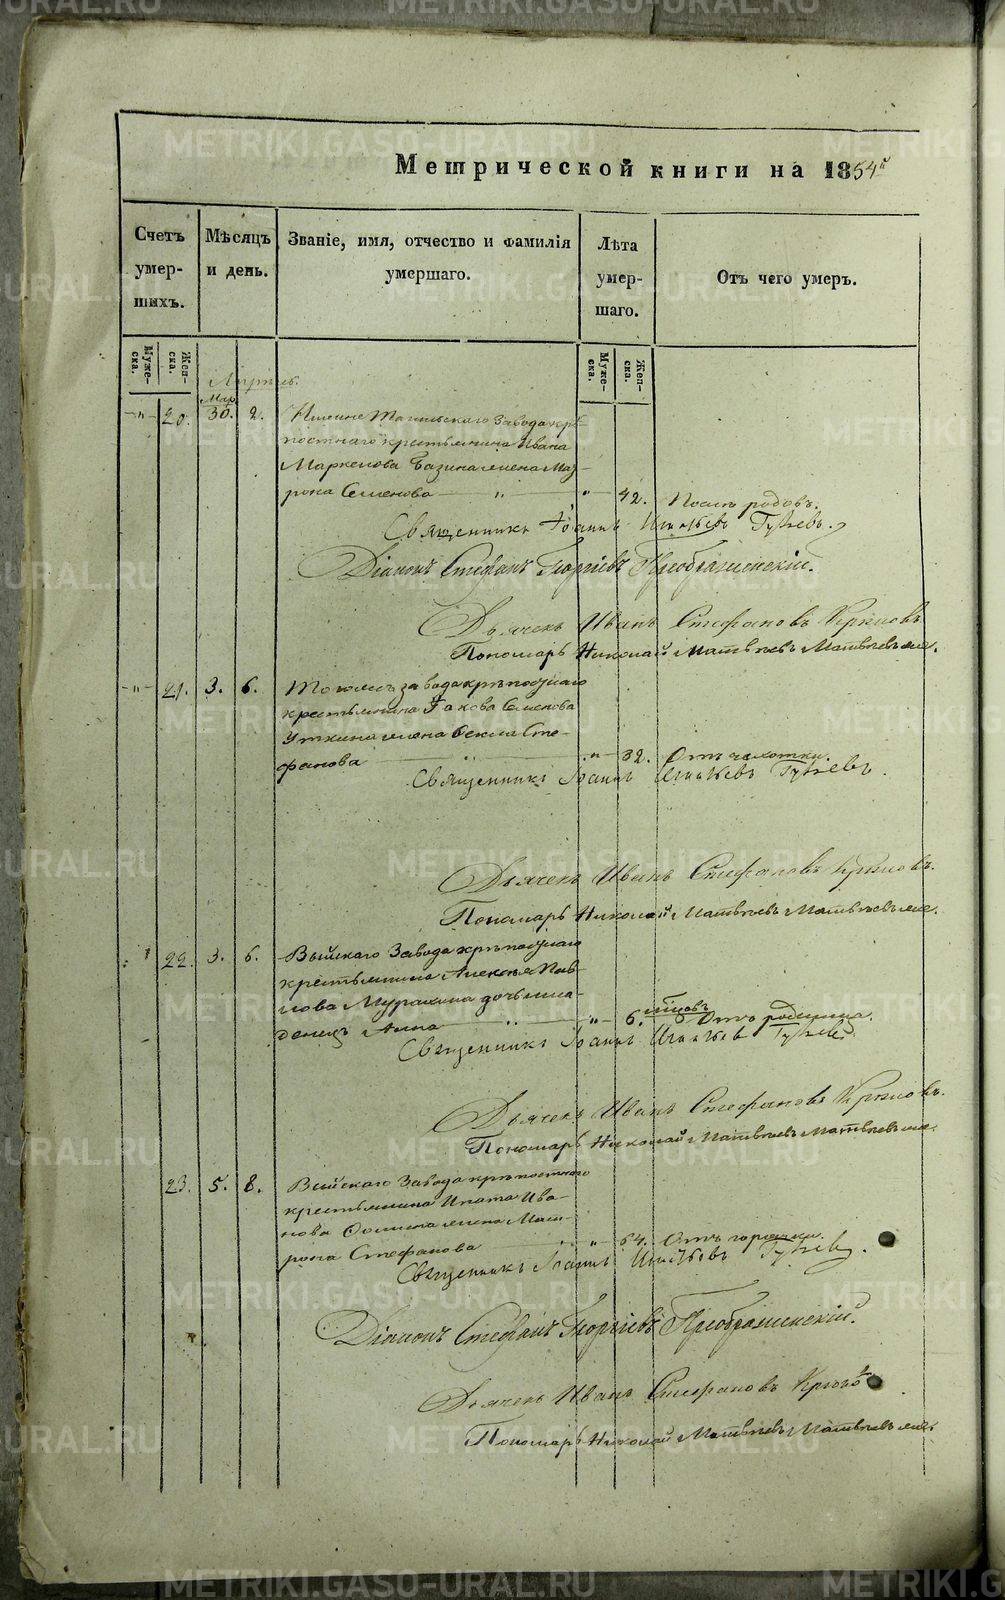 Метрической книги на 1854й
Счетъ умер- шихъ.
Мѣсяцъ и день.
Званіе, имя, отчество и фамилія умершаго.
Лѣта умер- шаго.
Отъ чего умеръ.
Муже- ска.
Жен- ска.
Муже- ска.
Жен- ска.
Апрѣль.
Мар.
20. 30. 2. Нижне Тагильскаго Завода крѣ-
постнаго крестьянина Ивана
Маркелова жена Мат-
рона Семенова 42. Послѣ родовъ.
Священникъ Іоаннъ Игнатьевъ
Діаконъ Стефанъ Георгіевъ Преображенскій.
Дьячекъ Иванъ Стефановъ
Пономарь Николай Матвѣевъ
21. 3. 6. Того же завода крѣпостнаго
крестьянина Іакова Семенова
Уткина жена Сте-
фанова 32. Отъ чахотки.
Священникъ Іоаннъ Игнатьевъ
Дьячекъ Иванъ Стефановъ
Пономарь Николай Матвѣевъ
22. 3. 6. Выйскаго Завода крѣпостнаго
крестьянина Алексѣя Пав-
лова дочь мла-
денецъ Анна 6. мѣсяцовъ Отъ родимца.
Священникъ Іоаннъ Игнатьевъ
Дьячекъ Иванъ Стефановъ
Пономарь Николай Матвѣевъ
23. 5. 8. Выйскаго Завода крѣпостнаго
крестьянина Ипата Ива-
нова жена Мат-
рона Стефанова 64. Отъ горячки.
Священникъ Іоаннъ Игнатьевъ
Діаконъ Стефанъ Георгіевъ Преображенскій.
Дьячекъ Иванъ Стефановъ
Пономарь Николай Матвѣевъ
METRIKI.GASO-URAL.RU